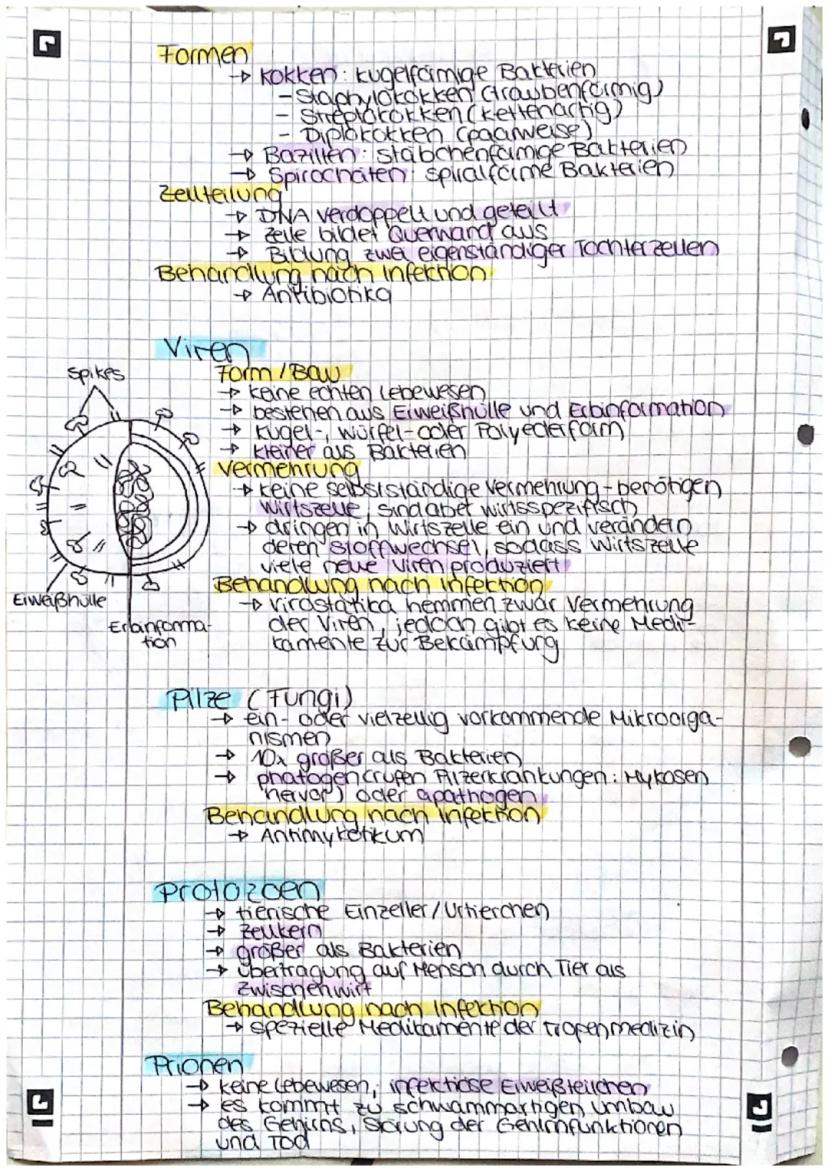 Formen
→ Kokken: kugelförmige Bakterien
- Staphylokokken (traubenförmig)
- Streptokokken (kettenartig)
- Diplokokken (paarweise)
→ Bazillen: stäbchenförmige Bakterien
→ Spirochäten: spiralförme Bakterien
Zellteilung
→ DNA verdoppelt und geteilt
→ Zelle bildet Querwand aus
→ Bildung zwei eigenständiger Tochterzellen
Behandlung nach Infektion
→ Antibiotika
Viren
Form / Bau
→ keine echten Lebewesen
→ bestehen aus Eiweißhülle und Erbinformation
→ Kugel-, würfel- oder Polyederform
→ kleiner als Bakterien
Vermehrung
→ keine selbstständige Vermehrung - benötigen
Wirtszelle, sind aber wirtsspezifisch
→ dringen in Wirtszelle ein und verändern
deren Stoffwechsel, sodass Wirtszelle
viele neue Viren produziert
Behandlung nach Infektion
→ Virostatika hemmen zwar Vermehrung
der Viren, jedoch gibt es keine Medi-
kamente zur Bekämpfung
Spikes
Eiweißhülle
Erbinforma-
tion
Pilze (Fungi)
→ ein- oder vielzellig vorkommende Mikroorga-
nismen
→ 10x größer als Bakterien
→ phatogen (rufen Pilzerkrankungen: Mykosen
hervor) oder apathogen
Behandlung nach Infektion
→ Antimykotikum
Protozoen
→ tierische Einzeller / Urtierchen
→ Zellkern
→ größer als Bakterien
→ Übertragung auf Mensch durch Tier als
Zwischenwirt
Behandlung nach Infektion
→ spezielle Medikamente der Tropenmedizin
Prionen
→ keine Lebewesen, infektiöse Eiweißteilchen
→ es kommt zu schwammartigen Umbau
des Gehirns, Störung der Gehirnfunktionen
und Tod